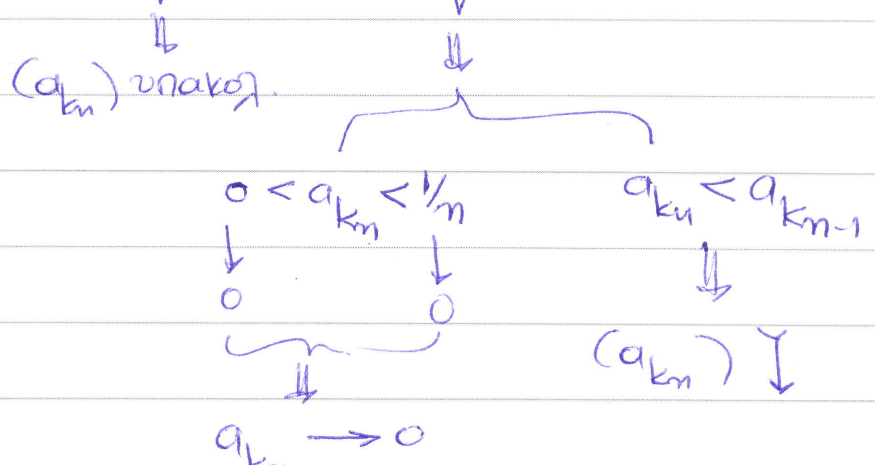 ⇓ ⇓
(a_{k_n}) υπακολ.
0 < a_{k_n} < 1/n a_{k_n} < a_{k_{n-1}}
↓ ↓ ⇓
0 0
(a_{k_n}) ↓
⇓
a_k → 0